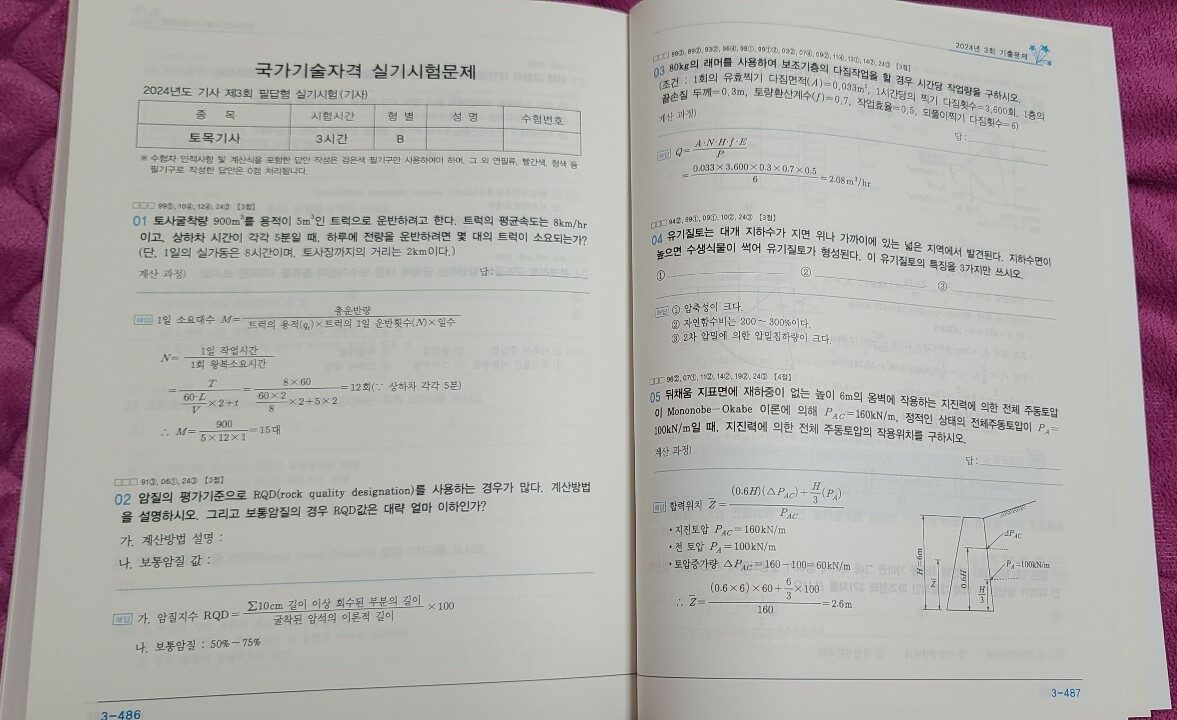 국가기술자격 실기시험문제
2024년도 기사 제3회 필답형 실기시험(기사)
종 목 시험시간 형 별 성 명 수험번호
토목기사 3시간 B
※ 수험자 인적사항 및 계산식을 포함한 답안 작성은 검은색 필기구만 사용하여야 하며, 그 외 연필류, 빨간색, 청색 등
필기구로 작성한 답안은 0점 처리됩니다.
□□□ 99⑤, 10④, 12④, 24③ 【3점】
01 토사굴착량 900m³를 용적이 5m³인 트럭으로 운반하려고 한다. 트럭의 평균속도는 8km/hr
이고, 상하차 시간이 각각 5분일 때, 하루에 전량을 운반하려면 몇 대의 트럭이 소요되는가?
(단, 1일의 실가동은 8시간이며, 토사장까지의 거리는 2km이다.)
계산 과정) 답:
해답 1일 소요대수 M= 총운반량 / 트럭의 용적(qₜ)×트럭의 1일 운반횟수(N)×일수
N= 1일 작업시간 / 1회 왕복소요시간
= T / (60·L/V ×2+t) = 8×60 / (60×2/8 ×2+5×2) =12회(∵ 상하차 각각 5분)
∴ M= 900 / 5×12×1 =15대
□□□ 91③, 06①, 24③ 【3점】
02 암질의 평가기준으로 RQD(rock quality designation)를 사용하는 경우가 많다. 계산방법
을 설명하시오. 그리고 보통암질의 경우 RQD값은 대략 얼마 이하인가?
가. 계산방법 설명 :
나. 보통암질 값 :
해답 가. 암질지수 RQD= ∑10cm 길이 이상 회수된 부분의 길이 / 굴착된 암석의 이론적 길이 ×100
나. 보통암질 : 50%~75%
3-486
2024년 3회 기출문제
□□□ 88③, 89②, 93②, 96④, 98①, 99①②, 03②, 07④, 09②, 11④, 13①, 14②, 24③ 【3점】
03 80kg의 래머를 사용하여 보조기층의 다짐작업을 할 경우 시간당 작업량을 구하시오.
(조건 : 1회의 유효찍기 다짐면적(A)=0.033m², 1시간당의 찍기 다짐횟수=3,600회, 1층의
끝손질 두께=0.3m, 토량환산계수(f)=0.7, 작업효율=0.5, 되풀이찍기 다짐횟수=6)
계산 과정)
답:
해답 Q= A·N·H·f·E / P
= 0.033×3,600×0.3×0.7×0.5 / 6 =2.08m³/hr
□□□ 94②, 99①, 09①, 10②, 24③ 【3점】
04 유기질토는 대개 지하수가 지면 위나 가까이에 있는 넓은 지역에서 발견된다. 지하수면이
높으면 수생식물이 썩어 유기질토가 형성된다. 이 유기질토의 특징을 3가지만 쓰시오.
① ② ③
해답 ① 압축성이 크다.
② 자연함수비는 200~300%이다.
③ 2차 압밀에 의한 압밀침하량이 크다.
□□□ 96②, 07①, 11②, 14②, 19②, 24③ 【4점】
05 뒤채움 지표면에 재하중이 없는 높이 6m의 옹벽에 작용하는 지진력에 의한 전체 주동토압
이 Mononobe-Okabe 이론에 의해 P_AC=160kN/m, 정적인 상태의 전체주동토압이 P_A=
100kN/m일 때, 지진력에 의한 전체 주동토압의 작용위치를 구하시오.
계산 과정)
답:
해답 합력위치 Z̄= (0.6H)(△P_AC)+H/3(P_A) / P_AC
·지진토압 P_AC=160kN/m
·전 토압 P_A=100kN/m
·토압증가량 △P_AC=160-100=60kN/m
∴ Z̄= (0.6×6)×60+6/3×100 / 160 =2.6m
H=6m
Z̄
0.6H
H/3
ΔP_AC
P_A=100kN/m
3-487